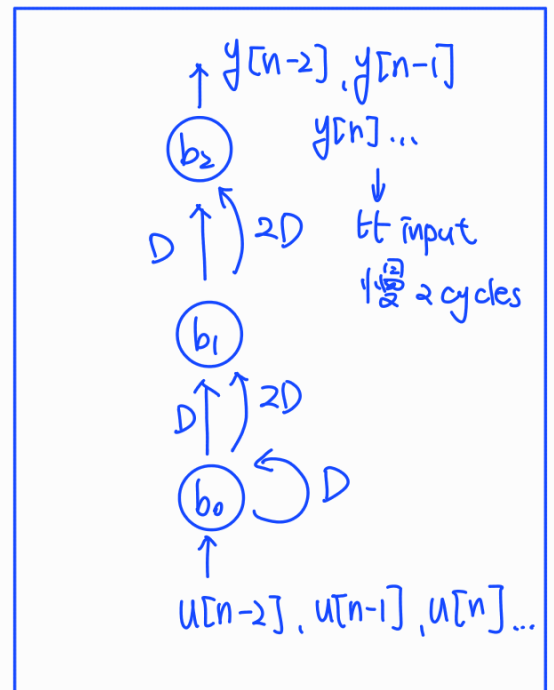 y[n-2], y[n-1]
y[n]...
↓
比 input
慢 2 cycles
b₂
D
2D
b₁
D
2D
b₀
D
u[n-2], u[n-1], u[n]...